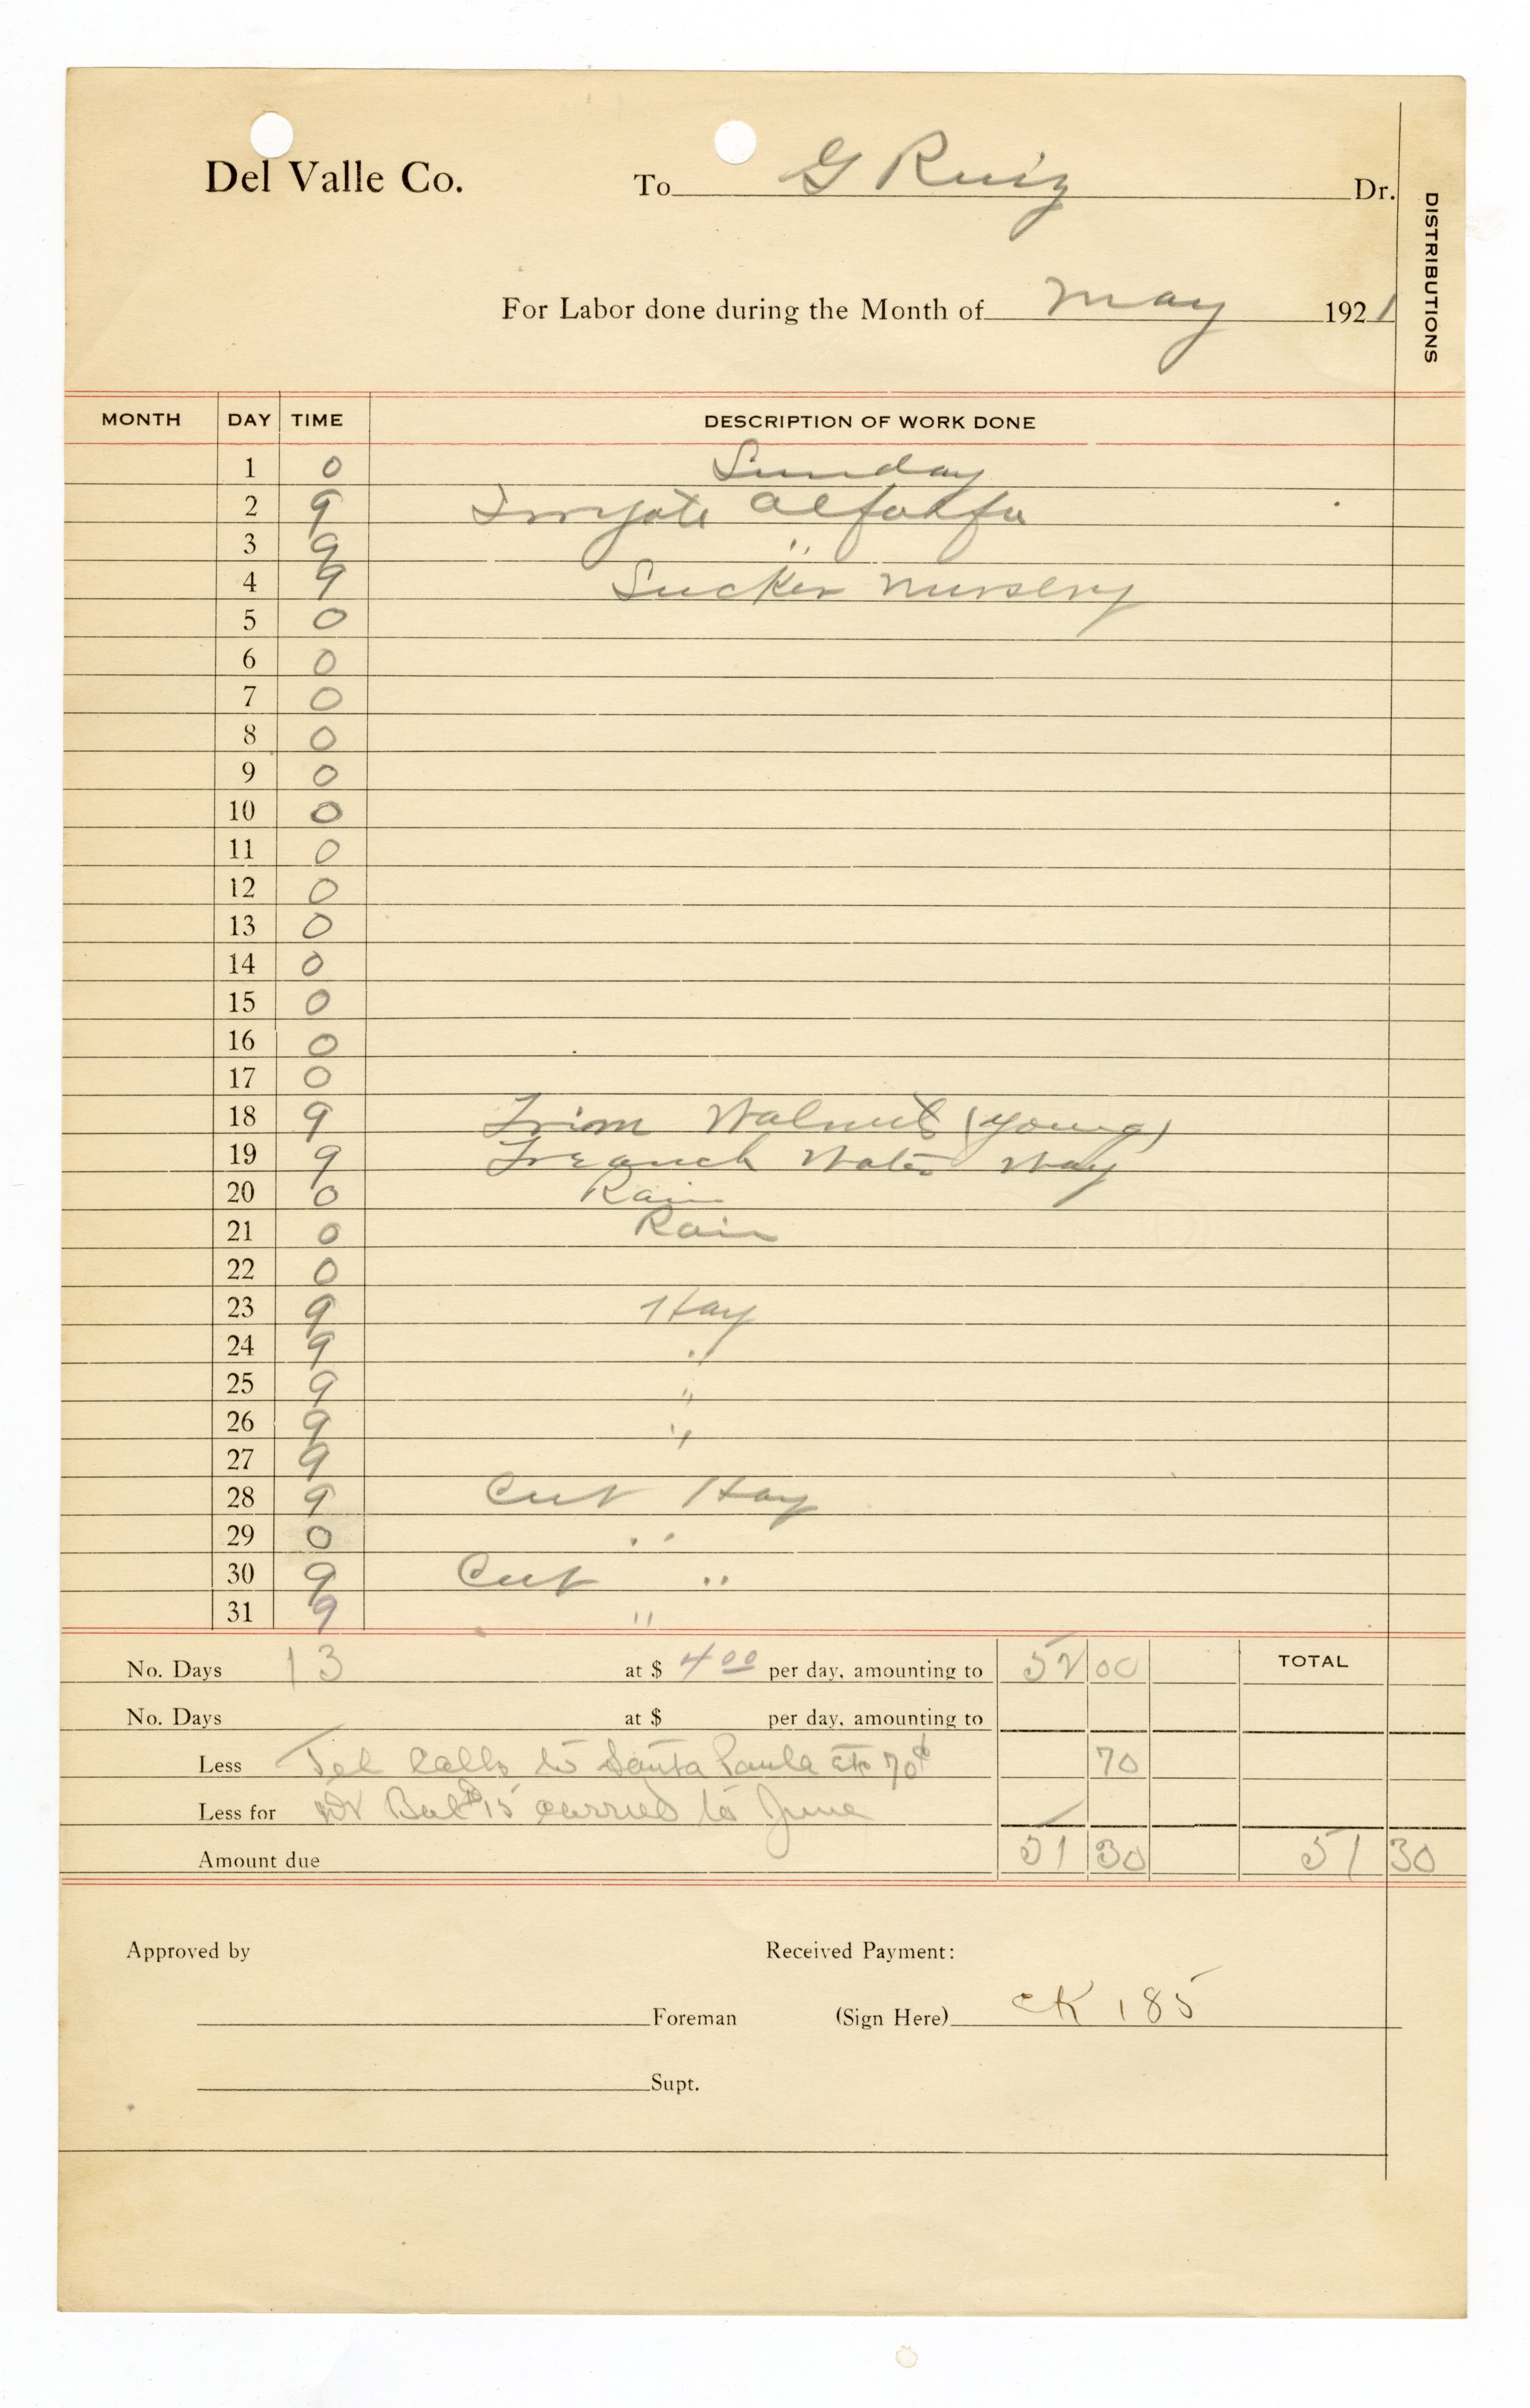 Del Valle Co. To G Ruiz Dr.
DISTRIBUTIONS
For Labor done during the Month of May 1921
MONTH DAY TIME DESCRIPTION OF WORK DONE
1 0 Sunday
2 9 Irrygate alfalfa
3 9 "
4 9 Sucker nursery
5 0
6 0
7 0
8 0
9 0
10 0
11 0
12 0
13 0
14 0
15 0
16 0
17 0
18 9 Trim Walnuts (young)
19 9 Water Way
20 0 Rain
21 0 Rain
22 0
23 9 Hay
24 9 "
25 9 "
26 9 "
27 9
28 9 Cut Hay
29 0 "
30 9 Cut "
31 9 "
No. Days 13 at $ 4 00 per day, amounting to 52 00 TOTAL
No. Days at $ per day, amounting to
Less Tel Calls to Santa Paula 70¢ 70
Less for Bal 15 carried to June
Amount due 51 30 51 30
Approved by Received Payment:
Foreman (Sign Here) CK 185
Supt.